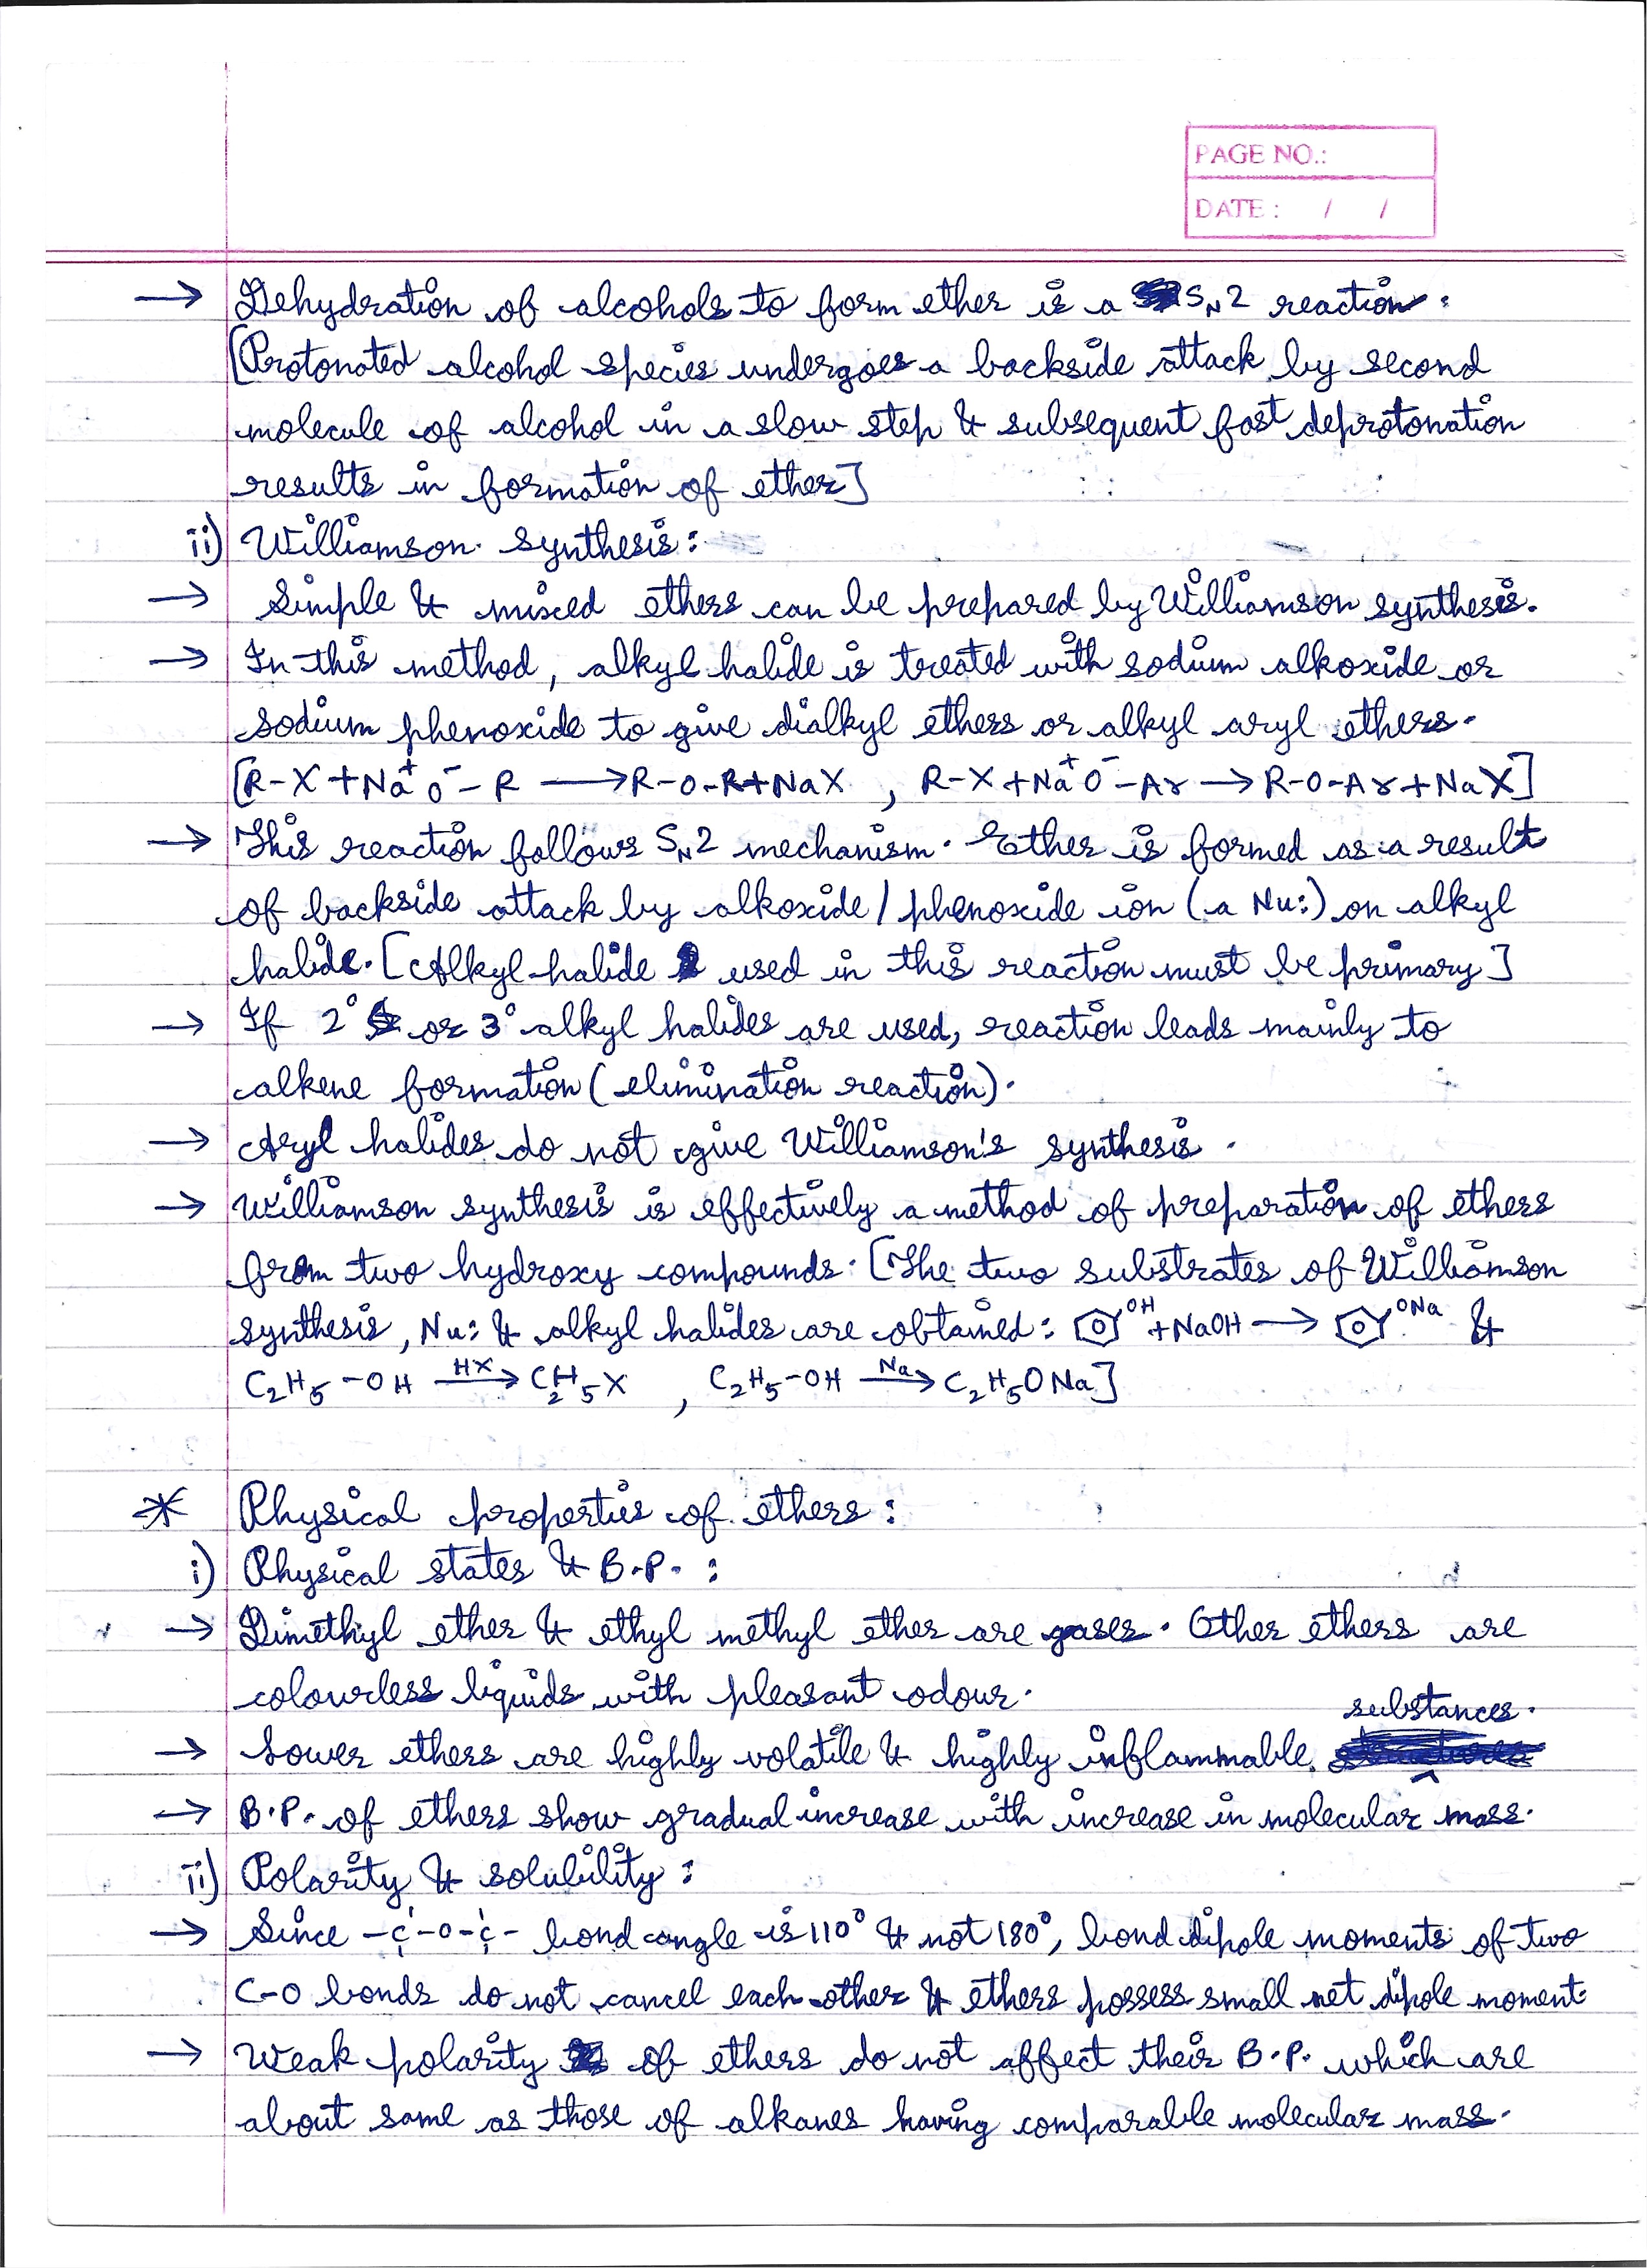 PAGE NO.:
DATE : / /
→ Dehydration of alcohols to form ether is a SN2 reaction.
[Protonated alcohol species undergoes a backside attack by second
molecule of alcohol in a slow step & subsequent fast deprotonation
results in formation of ether]
ii) Williamson synthesis:
→ Simple & mixed ethers can be prepared by Williamson synthesis.
→ In this method, alkyl halide is treated with sodium alkoxide or
sodium phenoxide to give dialkyl ethers or alkyl aryl ethers.
[R-X + Na⁺O⁻-R ⟶ R-O-R + NaX , R-X + Na⁺O⁻-Ar → R-O-Ar + NaX]
→ This reaction follows SN2 mechanism. Ether is formed as a result
of backside attack by alkoxide / phenoxide ion (a Nu:) on alkyl
halide. [Alkyl halide used in this reaction must be primary]
→ If 2° or 3° alkyl halides are used, reaction leads mainly to
alkene formation (elimination reaction).
→ Aryl halides do not give Williamson's synthesis.
→ Williamson synthesis is effectively a method of preparation of ethers
from two hydroxy compounds. [The two substrates of Williamson
synthesis, Nu: & alkyl halides are obtained: OH + NaOH ⟶ ONa &
C₂H₅-OH HX→ C₂H₅X , C₂H₅-OH Na→ C₂H₅ONa]
* Physical properties of ethers:
i) Physical states & B.P. :
→ Dimethyl ether & ethyl methyl ether are gases. Other ethers are
colourless liquids with pleasant odour.
→ Lower ethers are highly volatile & highly inflammable substances.
→ B.P. of ethers show gradual increase with increase in molecular mass.
ii) Polarity & solubility:
→ Since -C-O-C- bond angle is 110° & not 180°, bond dipole moments of two
C-O bonds do not cancel each other & ethers possess small net dipole moment.
→ Weak polarity of ethers do not affect their B.P. which are
about same as those of alkanes having comparable molecular mass.